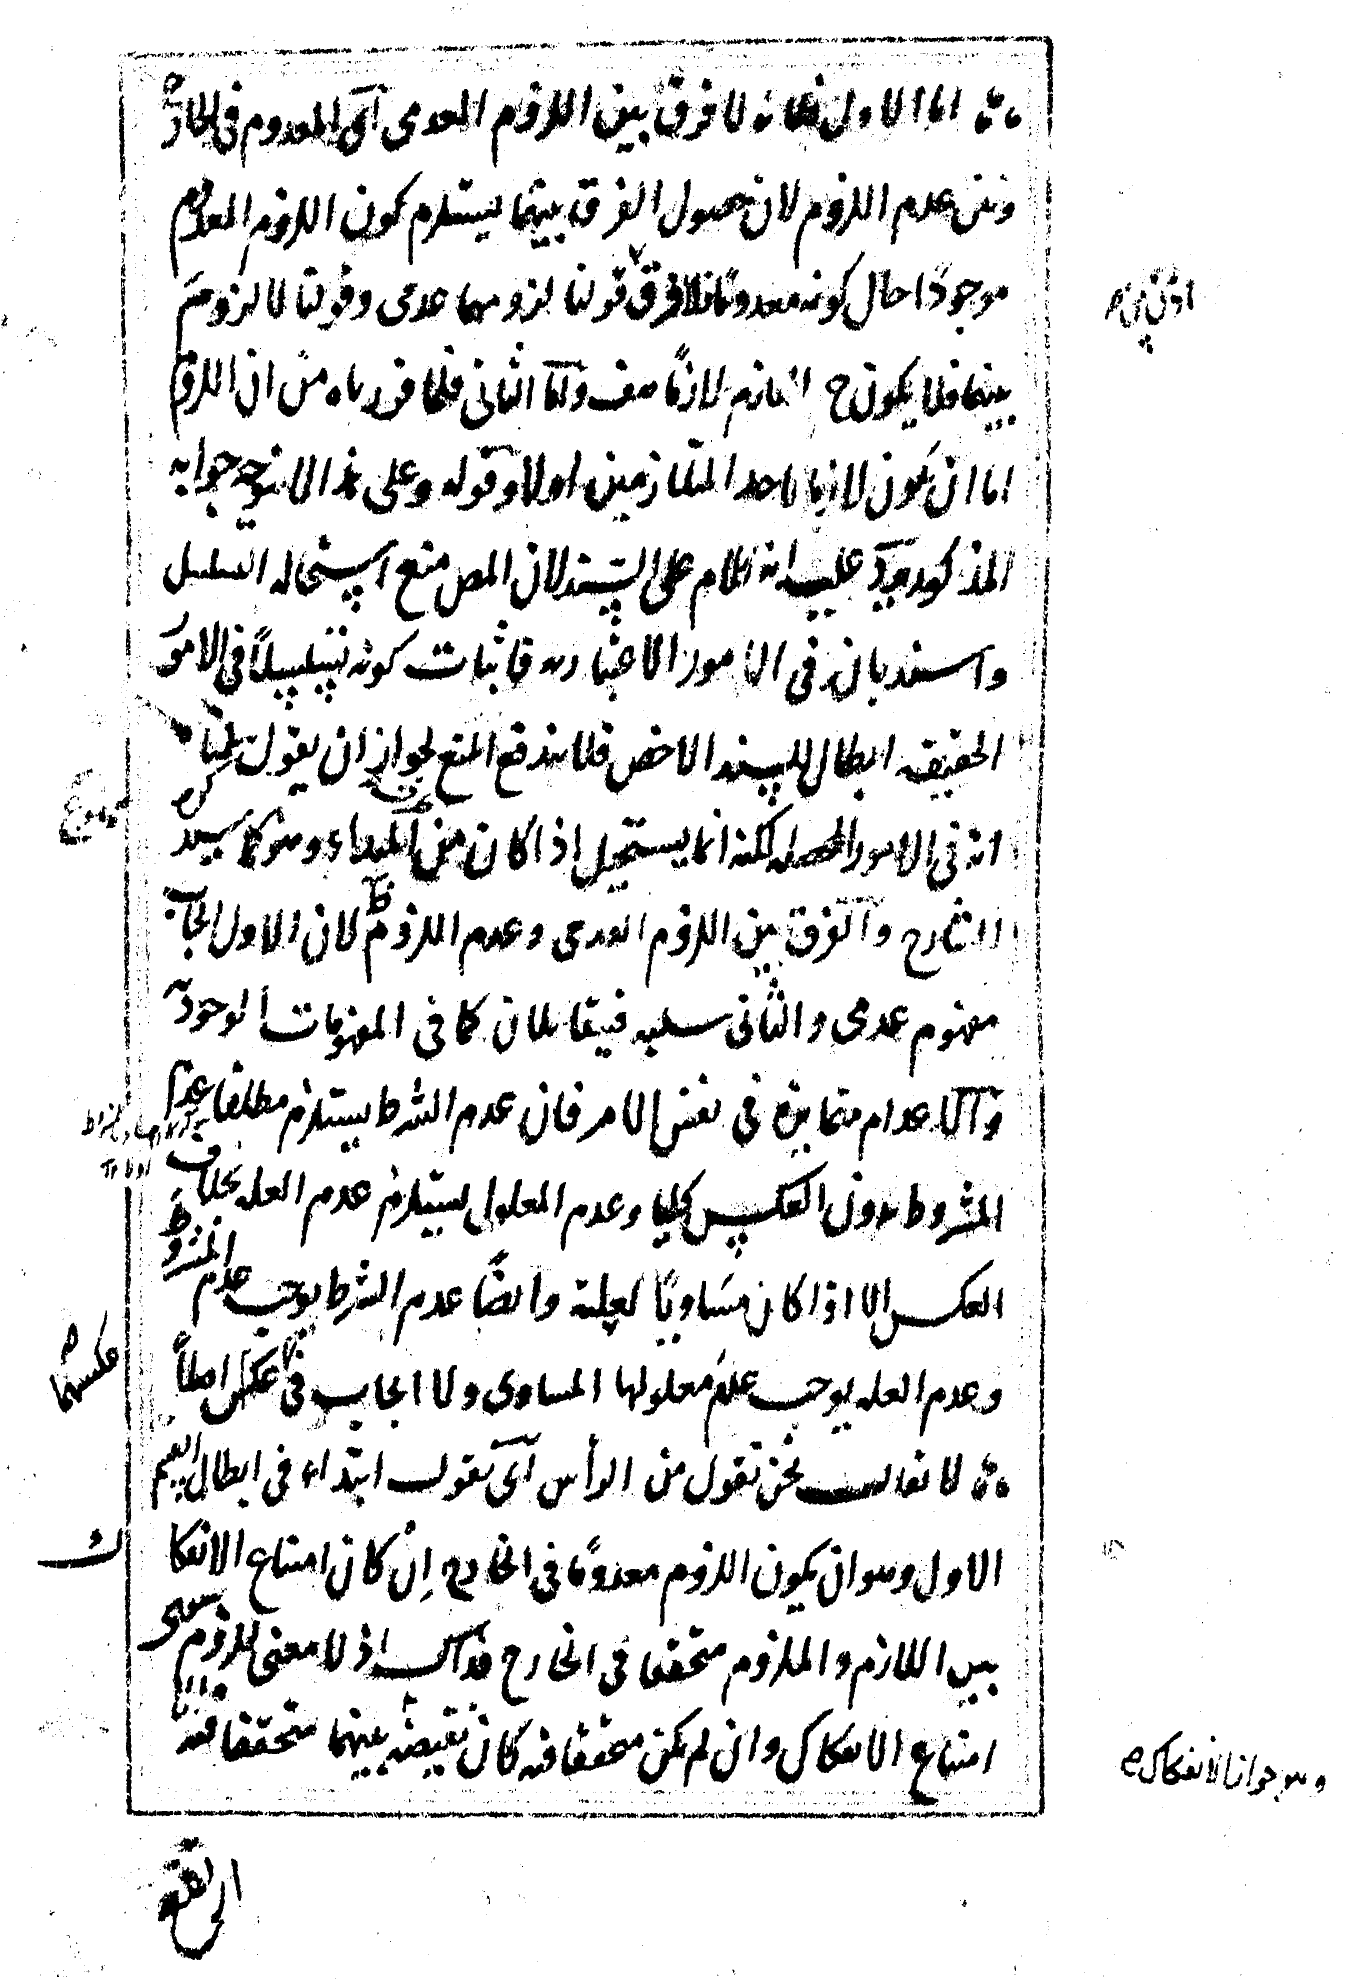 اما الاول فلانه لا فرق بين اللزوم العدمى اى المعدوم فى الخارج
وبين عدم اللزوم لان حصول الفرق بينهما يستلزم كون اللزوم المعدوم
موجودًا حال كونه معدومًا فلا فرق بين قولنا لزومهما عدمى وقولنا لا لزوم
بينهما فلا يكون ح اللازم لازمًا هف واما الثانى فلما قررناه من ان اللزوم
اما ان يكون لازما لاحد المتلازمين اولا وقوله وعلى هذا لا نوجه جوابه
المذكور يرد عليه انه كلام على السند لان المص منع استحالة التسلسل
واسند بان فى الامور الاعتباريه فاثبات كونه تسلسلًا فى الامور
الحقيقيه ابطال للسند الاخص فلا يندفع المنع لجواز ان يقول
انه فى الامور المحصله لكنه انما يستحيل اذا كان من المبداء وهو كما سيجد
الشارح والفرق بين اللزوم العدمى وعدم اللزوم ظ لان الاول ايجاب
مفهوم عدمى والثانى سلبه فيتقابلان كما فى المفهومات الوجوديه
والاعدام متمايزة فى نفس الامر فان عدم الشرط يستلزم مطلقا عدم
المشروط بدون العكس كليا وعدم المعلول يستلزم عدم العله بخلاف
العكس الا اذا كان مساويًا لعلته وايضًا عدم الشرط يوجب عدم المشروط
وعدم العله يوجب عدم معلولها المساوى ولا ايجاب فى عكسهما اصلًا
لا يقال نحن نقول من الرأس اى نقول ابتداء فى ابطال القسم
الاول وهو ان يكون اللزوم معدومًا فى الخارج ان كان امتناع الانفكاك
بين اللازم والملزوم متحققا فى الخارج فذاك اذ لا معنى للزوم سوى
امتناع الانفكاك وان لم يكن متحققا فيه كان نقيضه بينهما متحققا فيه
وهو جواز الانفكاك
عكسهما